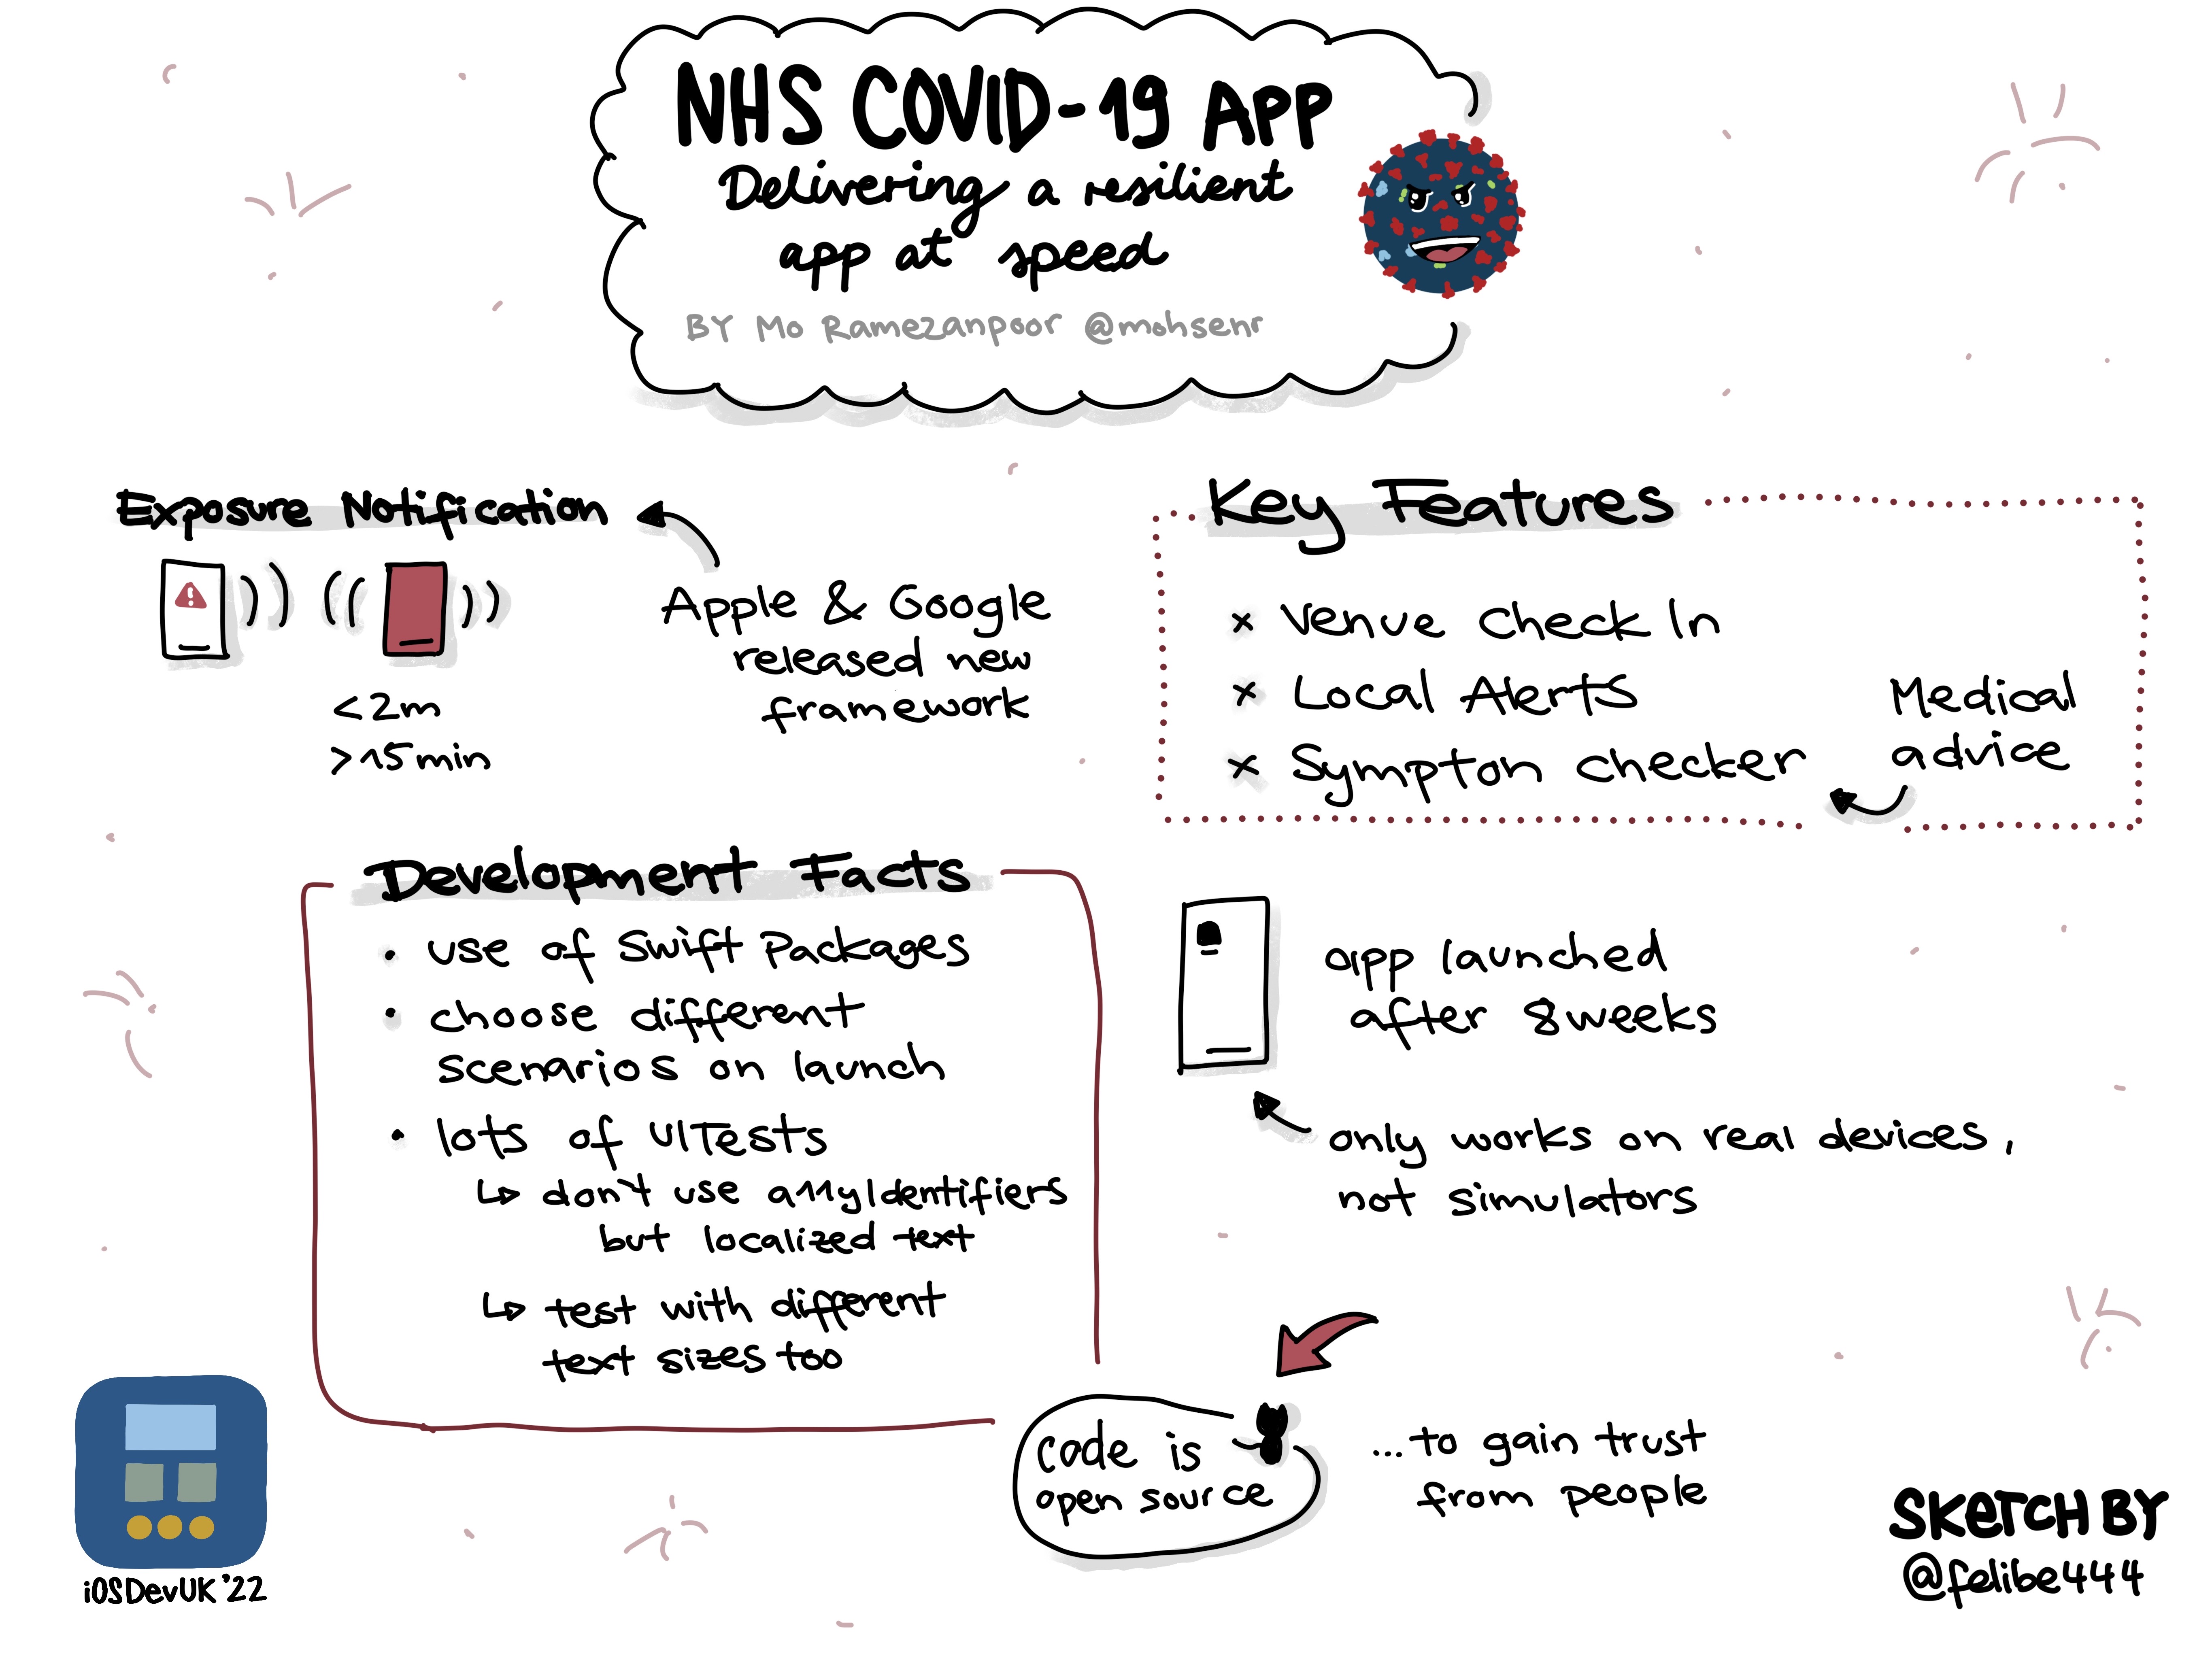 NHS COVID-19 APP
Delivering a resilient
app at speed
BY Mo Ramezanpoor @mohsenr
Exposure Notification
<2m
>15min
Apple & Google
released new
framework
Key Features
x Venue Check In
x Local Alerts
x Sympton checker
Medical
advice
Development Facts
• use of Swift Packages
• choose different
scenarios on launch
• lots of UITests
↳ don't use a11yIdentifiers
but localized text
↳ test with different
text sizes too
app launched
after 8 weeks
only works on real devices,
not simulators
code is
open source
...to gain trust
from people
iOSDevUK '22
SKETCH BY
@felibe444